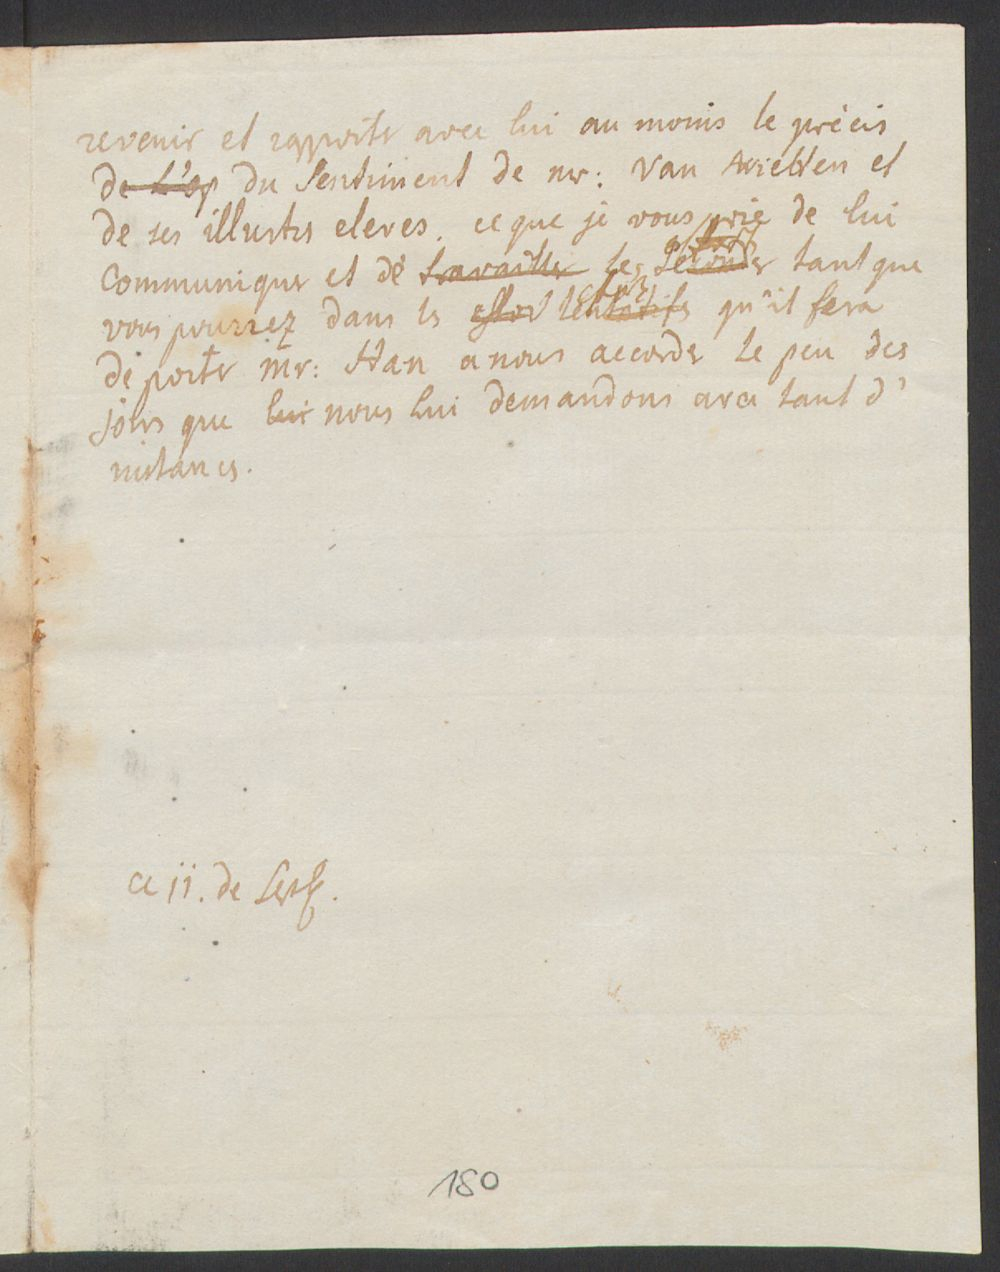 revenir et rapporter avec lui au moins le précis
de L'op du Sentiment de mr: Van Swietten et
de ses illustrs eleves. ce que je vous prie de lui
Communiquer et de travailler les Seconder tant que
vous pourrez dans les effor tentatifs qu'il fera
de porter mr: Han a nous accorder le peu des
jours que lui nous lui demandons avec tant d'
instances.
ce 11. de Sept.
180